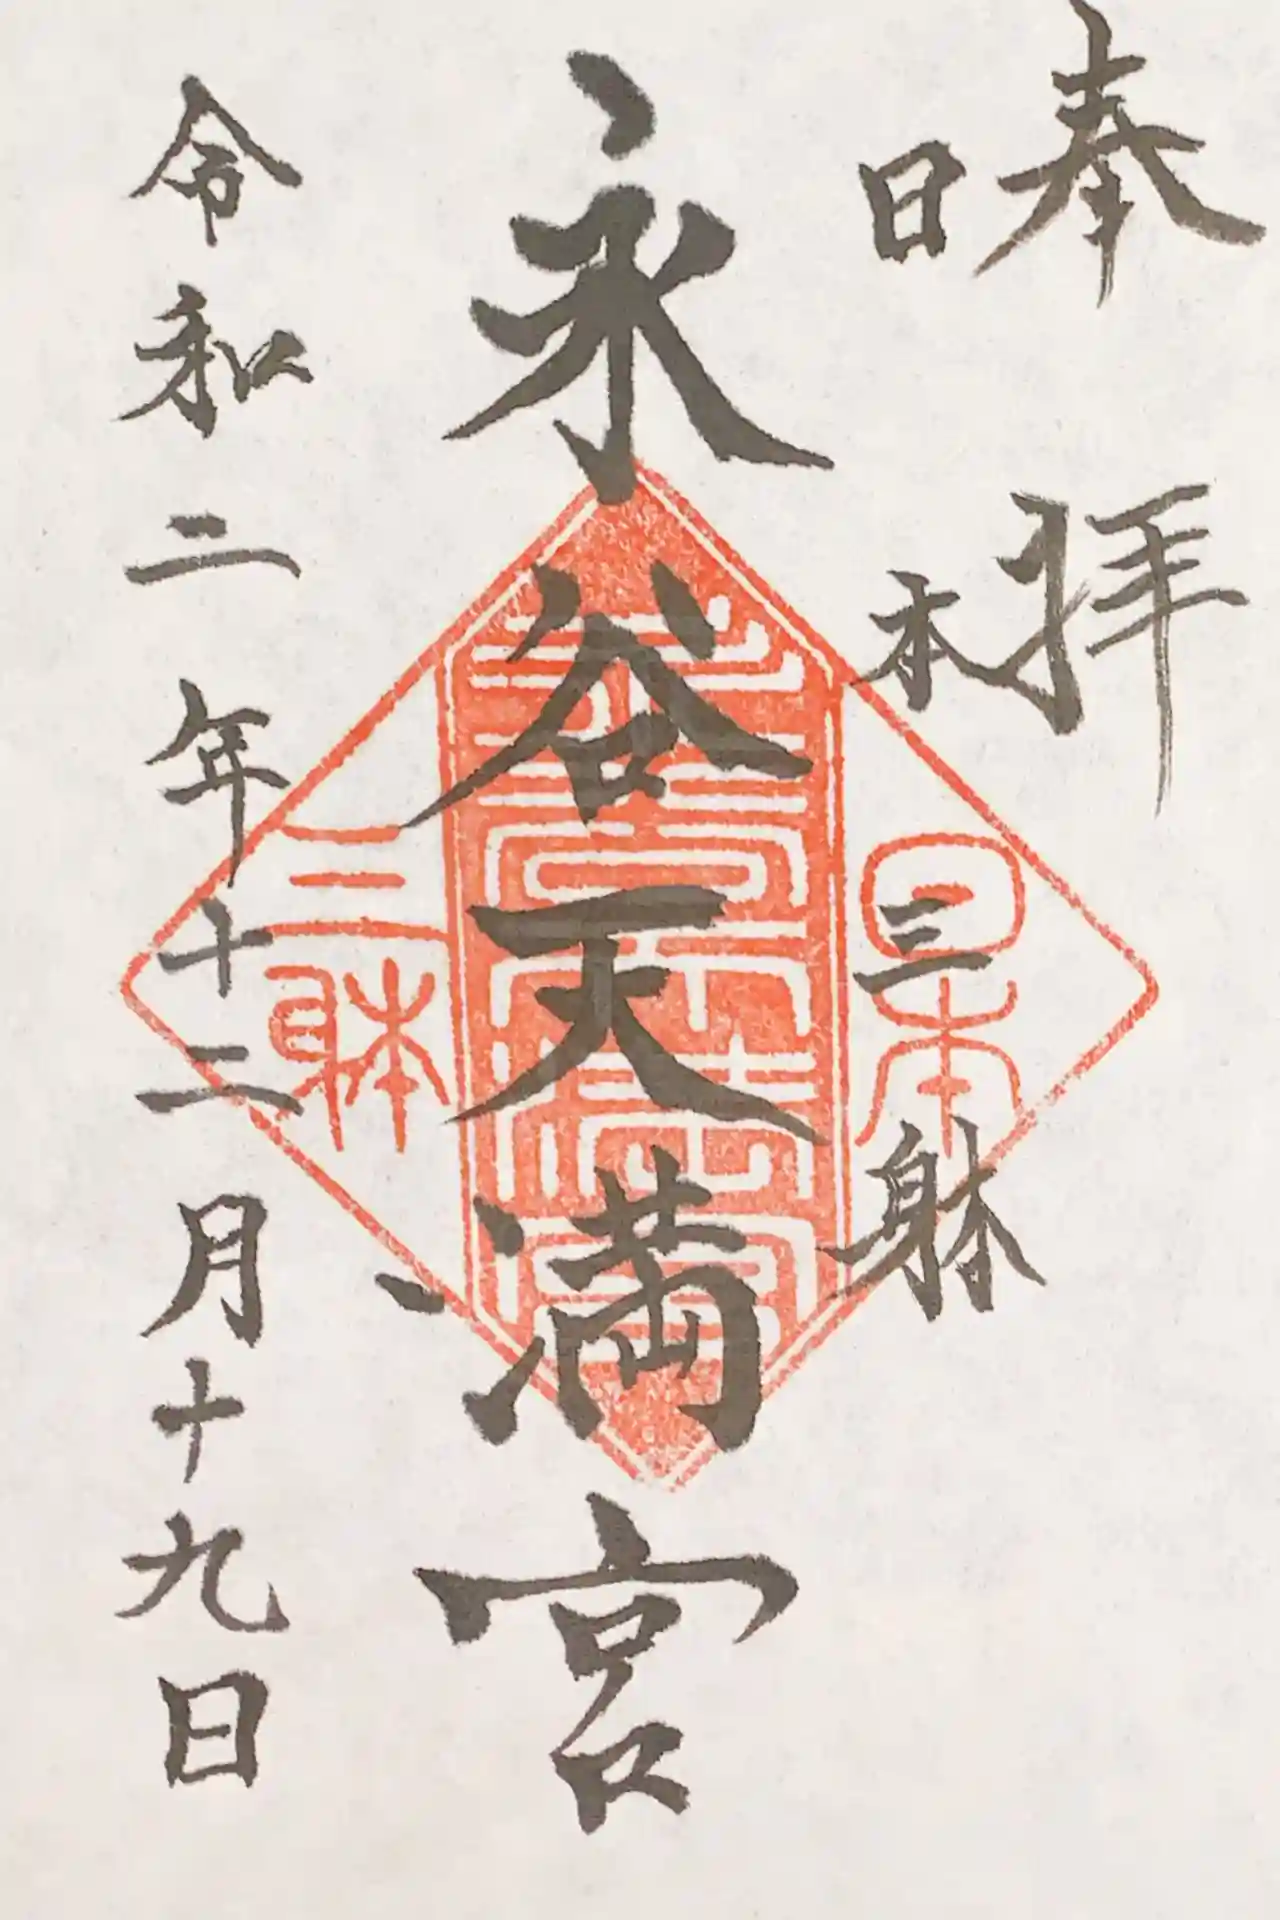 奉拝
日本三躰
永谷天満宮
令和二年十二月十九日
日本
三躰